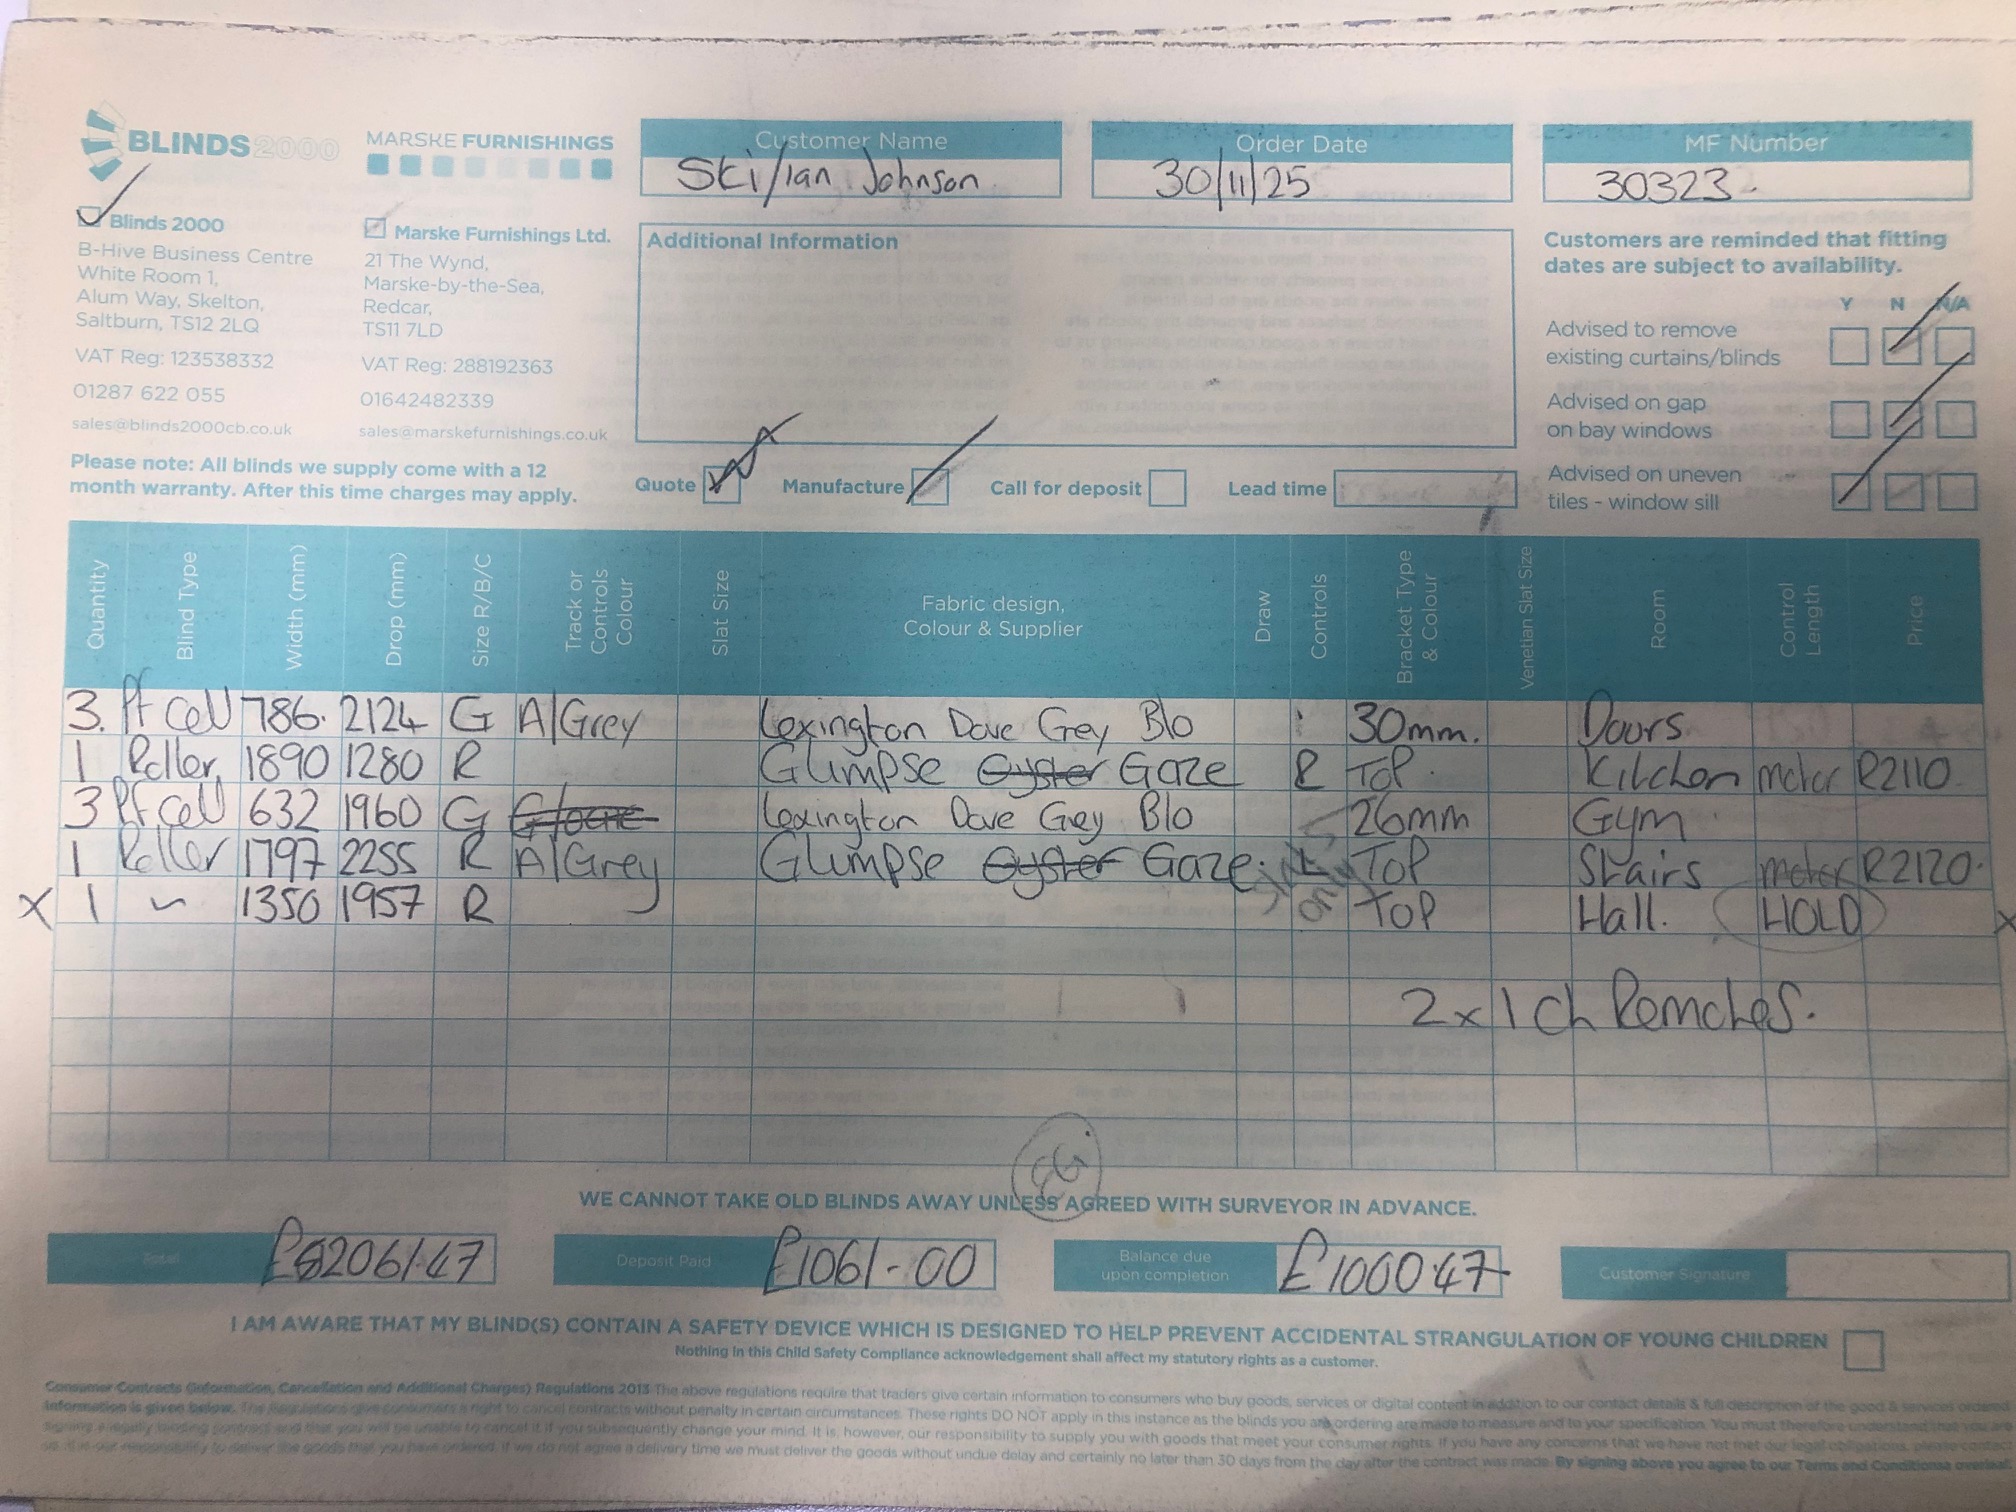 BLINDS 2000
MARSKE FURNISHINGS
Customer Name
Ski/Ian Johnson
Order Date
30/11/25
MF Number
30323.
Blinds 2000
B-Hive Business Centre
White Room 1,
Alum Way, Skelton,
Saltburn, TS12 2LQ
VAT Reg: 123538332
01287 622 055
sales@blinds2000cb.co.uk
Marske Furnishings Ltd.
21 The Wynd,
Marske-by-the-Sea,
Redcar,
TS11 7LD
VAT Reg: 288192363
01642482339
sales@marskefurnishings.co.uk
Additional Information
Customers are reminded that fitting
dates are subject to availability.
Y N N/A
Advised to remove
existing curtains/blinds
Advised on gap
on bay windows
Advised on uneven
tiles - window sill
Please note: All blinds we supply come with a 12
month warranty. After this time charges may apply.
Quote Manufacture Call for deposit Lead time
Quantity Blind Type Width (mm) Drop (mm) Size R/B/C Track or Controls Colour Slat Size Fabric design, Colour & Supplier Draw Controls Bracket Type & Colour Venetian Slat Size Room Control Length Price
3. Pf Cell 786. 2124 G A/Grey Lexington Dove Grey Blo 30mm. Doors
1 Roller 1890 1280 R Glimpse Oyster Gaze R Top. Kitchen motor R2110.
3 Pf Cell 632 1960 G Lexington Dove Grey Blo 26mm Gym
1 Roller 1797 2255 R A/Grey Glimpse Oyster Gaze. L Top Stairs motor R2120.
x 1 ~ 1350 1957 R only Top Hall. HOLD x
2x 1 Ch Remotes.
WE CANNOT TAKE OLD BLINDS AWAY UNLESS AGREED WITH SURVEYOR IN ADVANCE.
Total £2061.47
Deposit Paid £1061-00
Balance due
upon completion £1000.47
Customer Signature
I AM AWARE THAT MY BLIND(S) CONTAIN A SAFETY DEVICE WHICH IS DESIGNED TO HELP PREVENT ACCIDENTAL STRANGULATION OF YOUNG CHILDREN
Nothing in this Child Safety Compliance acknowledgement shall affect my statutory rights as a customer.
Consumer Contracts (Information, Cancellation and Additional Charges) Regulations 2013 The above regulations require that traders give certain information to consumers who buy goods, services or digital content in addition to our contact details & full description of the good & services ordered.
Information is given below. The Regulations give consumers a right to cancel contracts without penalty in certain circumstances. These rights DO NOT apply in this instance as the blinds you are ordering are made to measure and to your specification. You must therefore understand that you are
signing a legally binding contract and that you will be unable to cancel it if you subsequently change your mind. It is, however, our responsibility to supply you with goods that meet your consumer rights. If you have any concerns that we have not met our legal obligations, please contact
us. It is our responsibility to deliver the goods that you have ordered. If we do not agree a delivery time we must deliver the goods without undue delay and certainly no later than 30 days from the day after the contract was made. By signing above you agree to our Terms and Conditions overleaf.